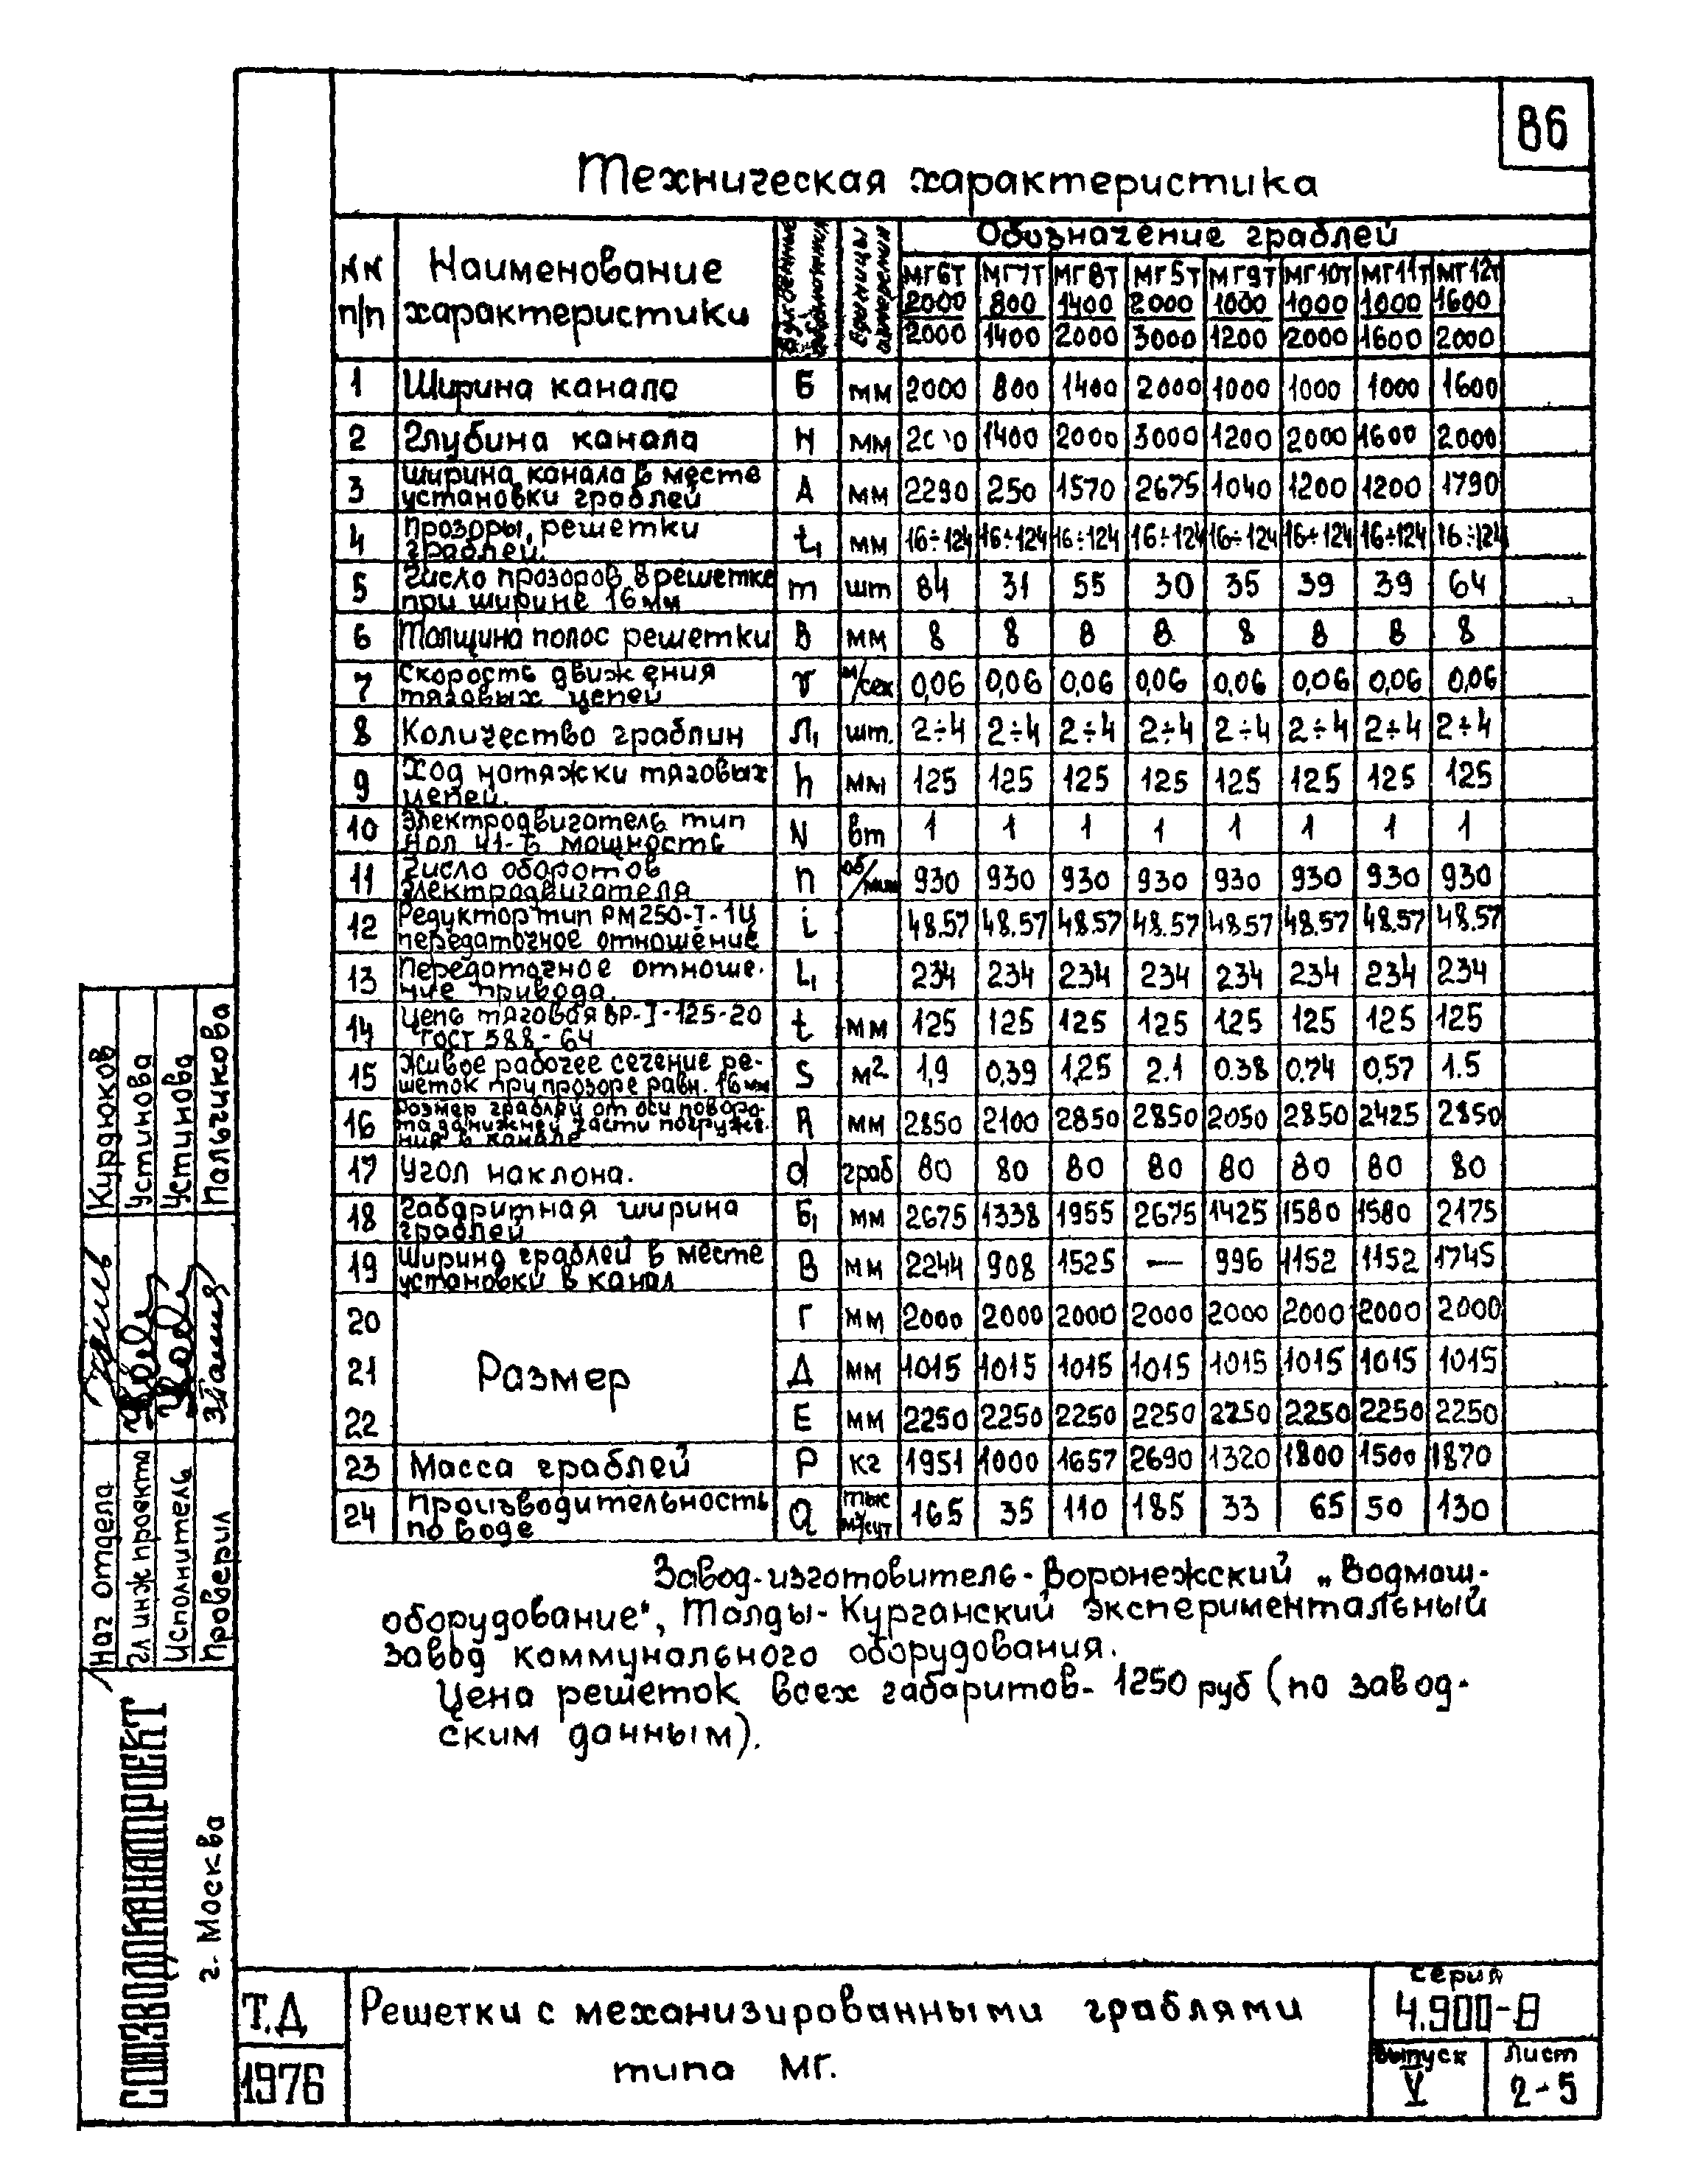 86
Техническая характеристика
NN п/п | Наименование характеристики | Единицы измерения | Обозначение граблей
МГ6Т 2000/2000 | МГ7Т 800/1400 | МГ8Т 1400/2000 | МГ5Т 2000/3000 | МГ9Т 1000/1200 | МГ10Т 1000/2000 | МГ11Т 1000/1600 | МГ12Т 1600/2000
1 | Ширина канала | Б | мм | 2000 | 800 | 1400 | 2000 | 1000 | 1000 | 1000 | 1600
2 | Глубина канала | Н | мм | 2000 | 1400 | 2000 | 3000 | 1200 | 2000 | 1600 | 2000
3 | Ширина канала в месте установки граблей | А | мм | 2290 | 250 | 1570 | 2675 | 1040 | 1200 | 1200 | 1790
4 | Прозоры, решетки граблей. | t₁ | мм | 16÷124 | 16÷124 | 16÷124 | 16÷124 | 16÷124 | 16÷124 | 16÷124 | 16÷124
5 | Число прозоров в решетке при ширине 16 мм | m | шт | 84 | 31 | 55 | 30 | 35 | 39 | 39 | 64
6 | Толщина полос решетки | В | мм | 8 | 8 | 8 | 8 | 8 | 8 | 8 | 8
7 | Скорость движения тяговых цепей | v | м/сек | 0,06 | 0,06 | 0,06 | 0,06 | 0,06 | 0,06 | 0,06 | 0,06
8 | Количество граблин | Л₁ | шт. | 2÷4 | 2÷4 | 2÷4 | 2÷4 | 2÷4 | 2÷4 | 2÷4 | 2÷4
9 | Ход натяжки тяговых цепей. | h | мм | 125 | 125 | 125 | 125 | 125 | 125 | 125 | 125
10 | Электродвигатель тип мощность | N | вт | 1 | 1 | 1 | 1 | 1 | 1 | 1 | 1
11 | Число оборотов электродвигателя | n | об/мин | 930 | 930 | 930 | 930 | 930 | 930 | 930 | 930
12 | Редуктор тип РМ250-I-1Ц передаточное отношение | i | 48.57 | 48.57 | 48.57 | 48.57 | 48.57 | 48.57 | 48.57 | 48.57
13 | Передаточное отношение привода. | i₁ | 234 | 234 | 234 | 234 | 234 | 234 | 234 | 234
14 | Цепь тяговая ВР-I-125-20 ГОСТ 588-64 | t | мм | 125 | 125 | 125 | 125 | 125 | 125 | 125 | 125
15 | Живое рабочее сечение решеток при прозоре равн. 16 мм | S | м² | 1,9 | 0,39 | 1,25 | 2.1 | 0.38 | 0.74 | 0,57 | 1.5
16 | Размер граблей от оси поворота до нижней части погружения в канале | R | мм | 2850 | 2100 | 2850 | 2850 | 2050 | 2850 | 2425 | 2850
17 | Угол наклона. | d | град | 80 | 80 | 80 | 80 | 80 | 80 | 80 | 80
18 | Габаритная ширина граблей | Б₁ | мм | 2675 | 1338 | 1955 | 2675 | 1425 | 1580 | 1580 | 2175
19 | Ширина граблей в месте установки в канал | В | мм | 2244 | 908 | 1525 | — | 996 | 1152 | 1152 | 1745
20 | Размер | Г | мм | 2000 | 2000 | 2000 | 2000 | 2000 | 2000 | 2000 | 2000
21 | Д | мм | 1015 | 1015 | 1015 | 1015 | 1015 | 1015 | 1015 | 1015
22 | Е | мм | 2250 | 2250 | 2250 | 2250 | 2250 | 2250 | 2250 | 2250
23 | Масса граблей | Р | кг | 1951 | 1000 | 1657 | 2690 | 1320 | 1800 | 1500 | 1870
24 | Производительность по воде | Q | тыс м³/сут | 165 | 35 | 110 | 185 | 33 | 65 | 50 | 130
Завод-изготовитель - Воронежский „Водмаш-
оборудование", Талды-Курганский экспериментальный
завод коммунального оборудования.
Цена решеток всех габаритов- 1250 руб (по завод-
ским данным).
Нач отдела Курдюков
Гл инж проекта Устинова
Исполнитель Устинова
Проверил Пальчикова
СОЮЗВОДОКАНАЛПРОЕКТ
г. Москва
Т.Д
1976
Решетки с механизированными граблями
типа МГ.
серия
4.900-8
выпуск
V
лист
2-5